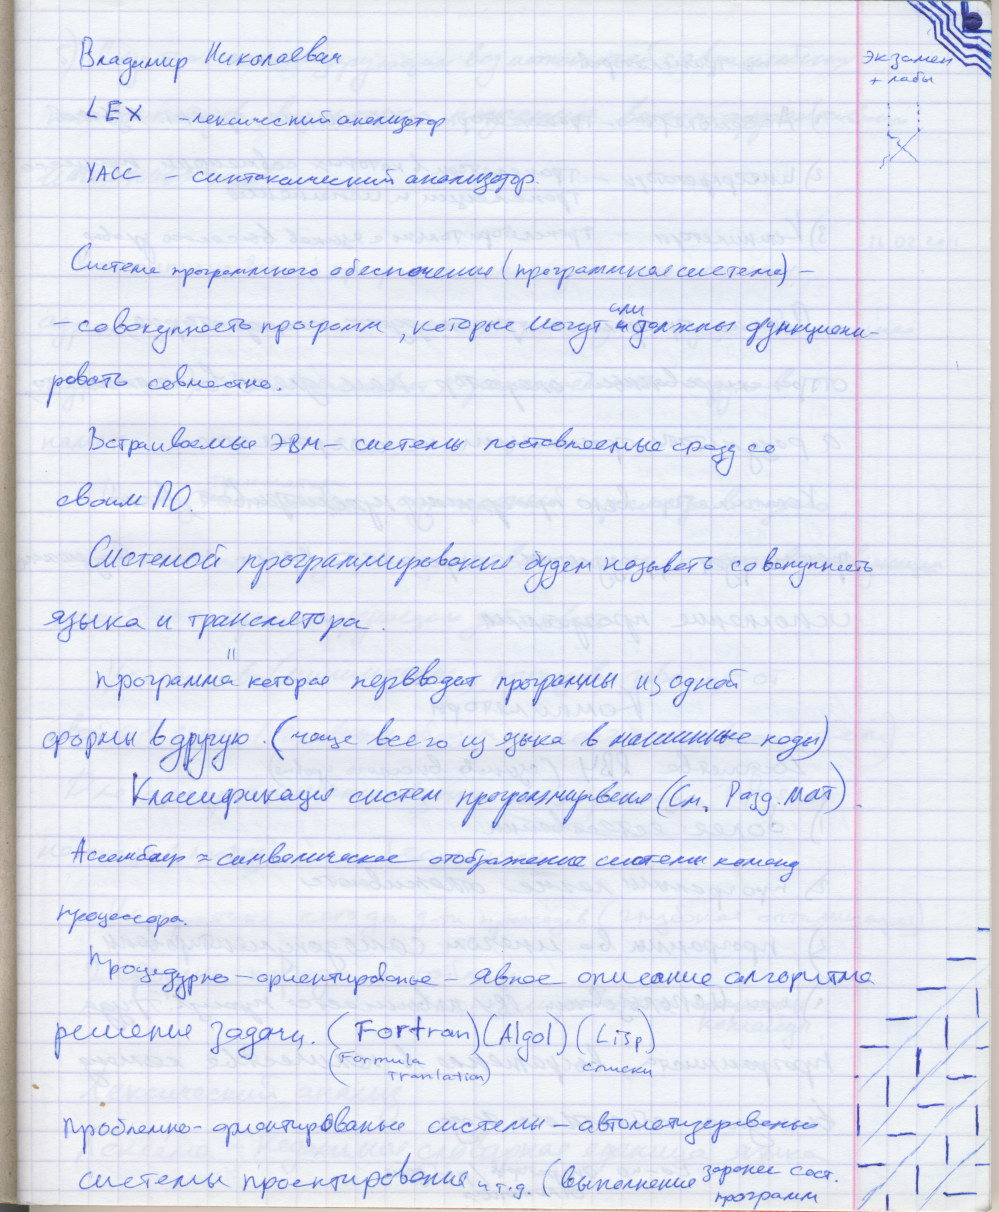 Владимир Николаевич
экзамен
+ лабы
LEX - лексический анализатор
YACC - синтаксический анализатор.
Система программного обеспечения (программная система) -
- совокупность программ, которые могут или должны функциони-
ровать совместно.
Встраиваемые ЭВМ - системы поставляемые сразу со
своим ПО.
Системой программирования будем называть совокупность
языка и транслятора.
"
программа которая переводит программы из одной
формы в другую. (чаще всего из языка в машинные коды)
Классификация систем программирования (См. Разд. мат).
Ассемблер = символическое отображение системы команд
процессора.
Процедурно-ориентированые - явное описание алгоритма
решения задачи. (Fortran) (Algol) (Lisp)
(Formula Tranlation) списки
Проблемно-ориентированые системы - автоматизированые
системы проектирования и т.д. (выполнение заранее сост.
программ